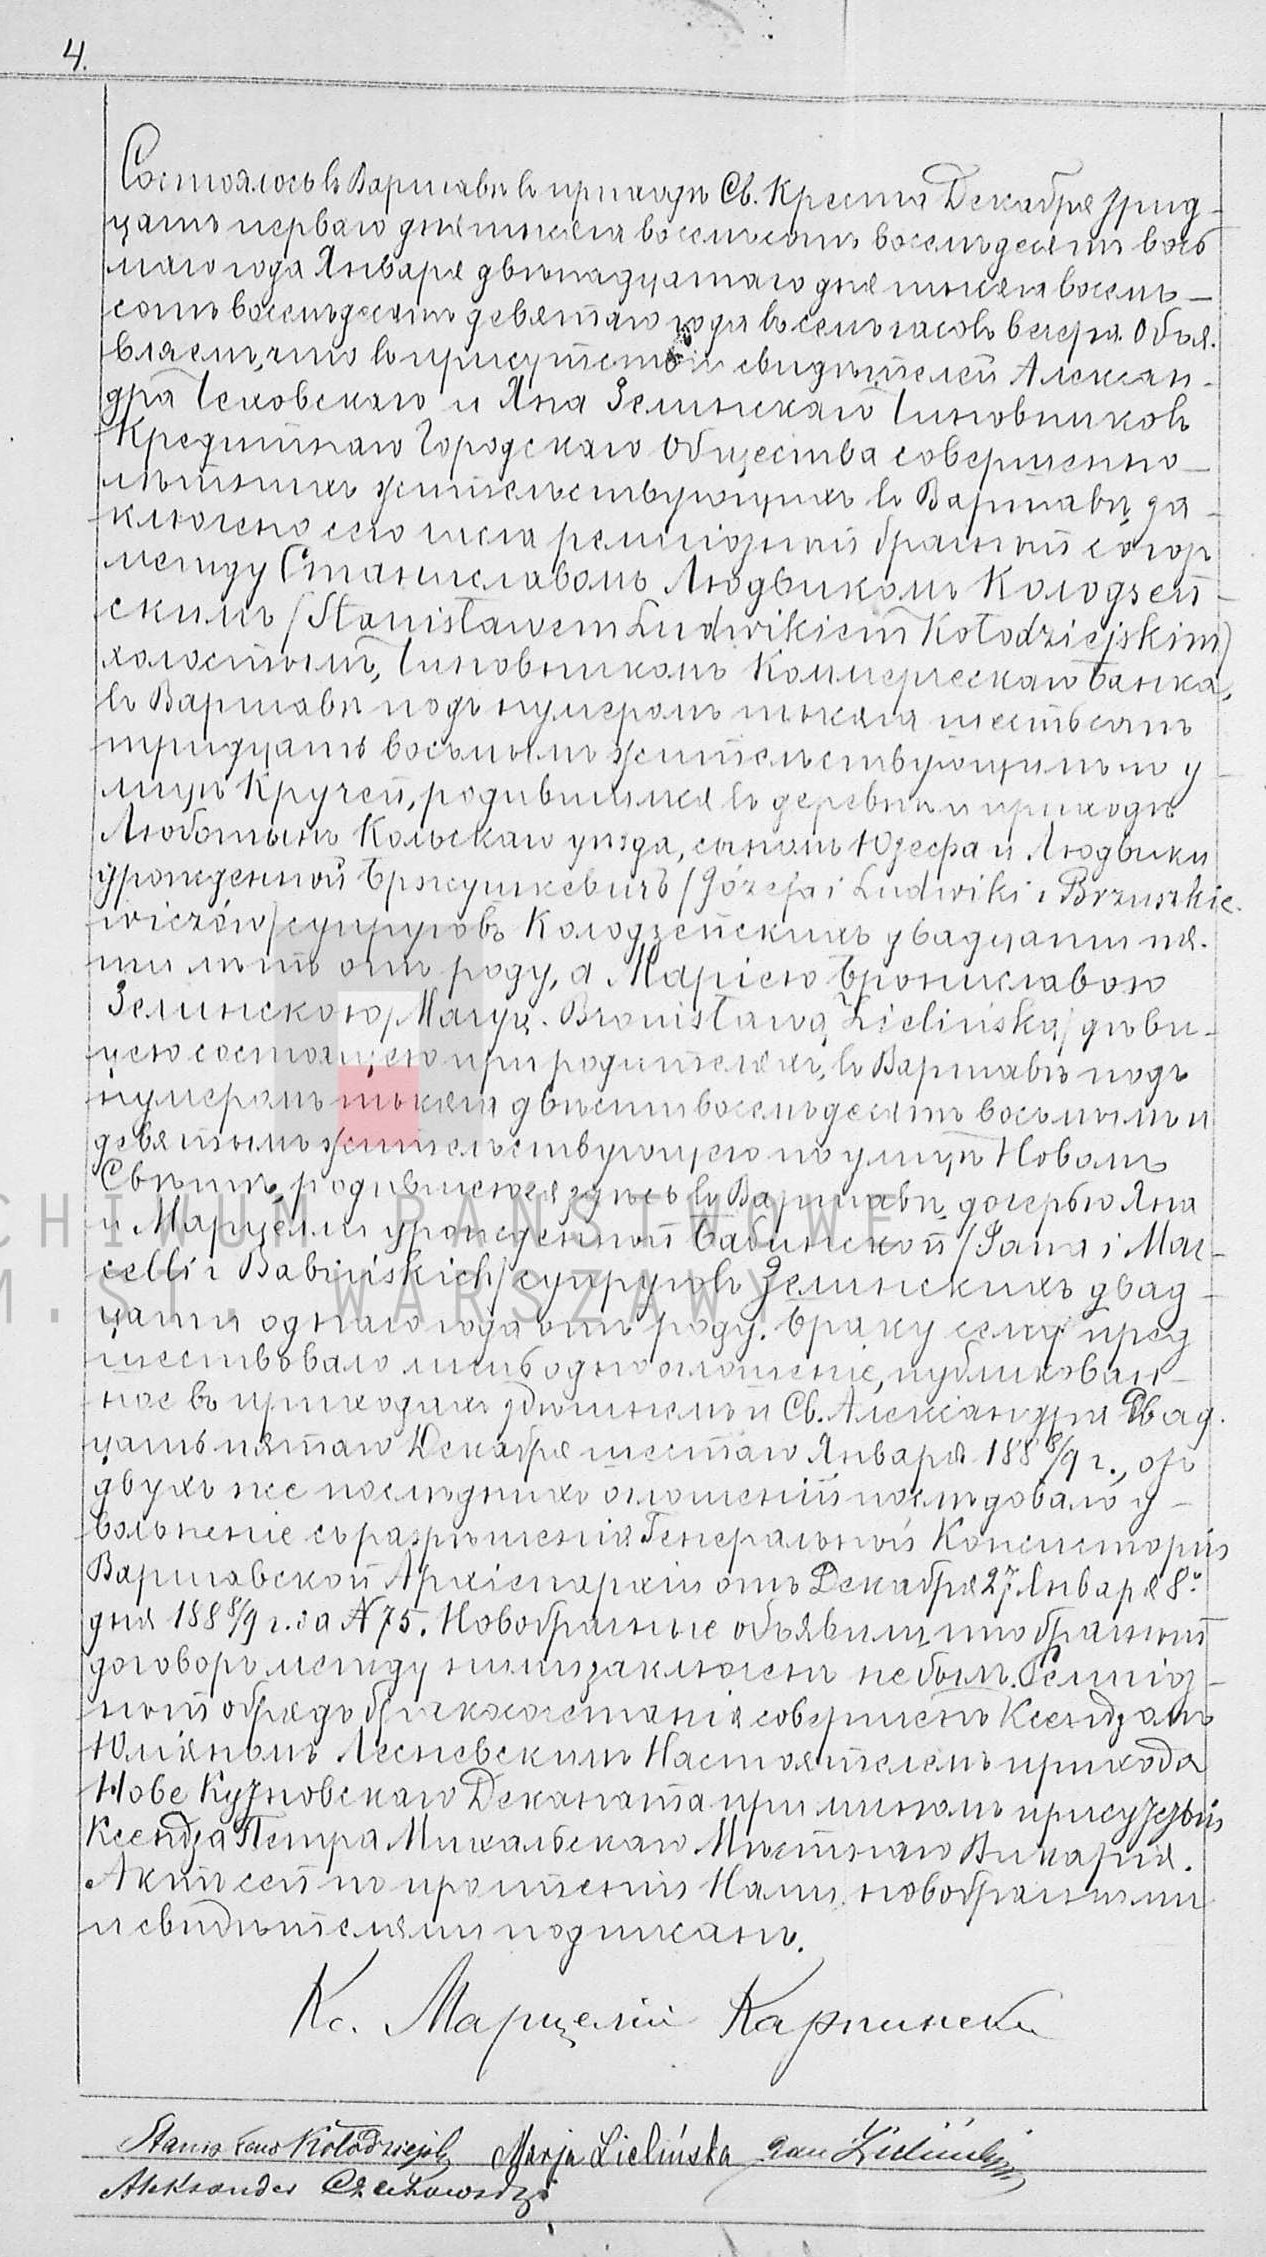 4.
Состоялось въ Варшавѣ въ приходѣ Св. Креста Декабря трид-
цать перваго дня тысяча восемьсотъ восемьдесятъ вось
маго года Января двѣнадцатаго дня тысяча восемь-
сотъ восемьдесятъ девятаго года въ семь часовъ вечера. Объя-
вляемъ, что въ присутствіи свидѣтелей Алексан-
дра Чеховскаго и Яна Зелинскаго Чиновниковъ
Кредитнаго Городскаго Общества совершенно-
лѣтнихъ жительствующихъ въ Варшавѣ, за-
ключено сего числа религіозный брачный союзъ
между Станиславомъ Людвикомъ Колодзей-
скимъ /Stanisławem Ludwikiem Kołodziejskim/
холостымъ, Чиновникомъ Коммерческаго Банка,
въ Варшавѣ подъ нумеромъ тысяча шестьсотъ
тридцать восьмымъ жительствующимъ по у-
лицѣ Кручей, родившимся въ деревнѣ и приходѣ
Люботынь Кольскаго уѣзда, сыномъ Юзефа и Людвики
урожденной Бржушкевичъ /Józefa i Ludwiki z Brzuszkie-
wiczów/ супруговъ Колодзейскихъ двадцати пя-
ти лѣтъ отъ роду, а Маріею Брониславою
Зелинскою /Maryą Bronisławą Zielińską/ дѣви-
цею состоящею при родителяхъ, въ Варшавѣ подъ
нумеромъ тысяча двѣсти восемьдесятъ восьмымъ и
девятымъ жительствующею по улицѣ Новомъ
Свѣтѣ, родившеюся здѣсь въ Варшавѣ, дочерью Яна
и Марцелли урожденной Бабинской /Jana i Mar-
celli z Babińskich/ супруговъ Зелинскихъ двад-
цати однаго года отъ роду. Браку сему пред
шествовало лишь одно оглашеніе, публикован-
ное въ приходахъ здѣшнемъ и Св. Александра Двад-
цать пятаго Декабря шестаго Января 188 8/9 г., отъ
двухъ же послѣднихъ оглашеній послѣдовало у-
вольненіе съ разрѣшенія Генеральной Консисторіи
Варшавской Архіепархіи отъ Декабря 27 Января 8го
дня 188 8/9 г. за N 75. Новобрачные объявили, что брачный
договоръ между ними заключенъ не былъ. Религіоз-
ный обрядъ бракосочетанія совершенъ Ксендзомъ
Юліяномъ Лесневскимъ Настоятелемъ прихода
Нове Кутновскаго Деканата при личномъ присутствіи
Ксендза Петра Михальскаго Мѣстнаго Викарія.
Актъ сей по прочтеніи Нами, новобрачными
и свидѣтелями подписанъ.
Кс. Марцелій Карпински
Stanisław Kołodziejski Marja Zielińska Jan Zieliński
Aleksander Czechowski
ARCHIWUM PAŃSTWOWE
M.ST. WARSZAWY